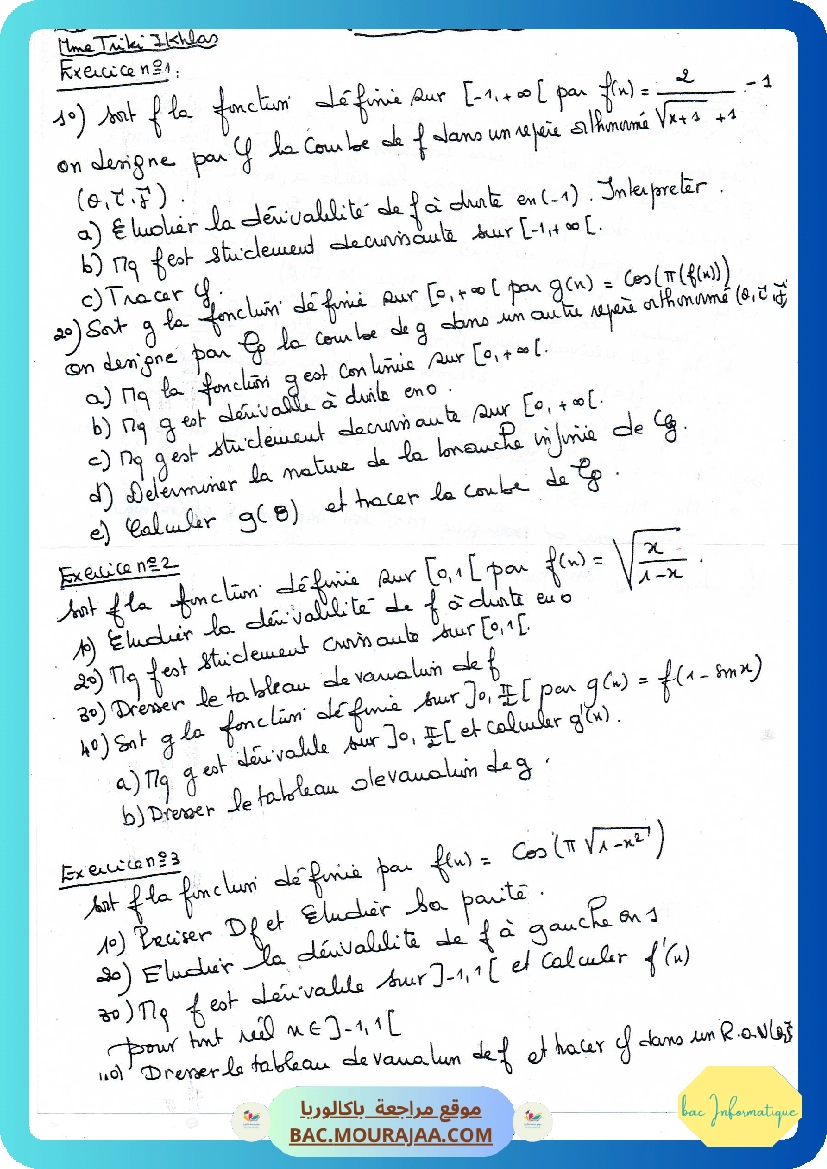 Mme Triki Ikhlas
Exercice n°1:
1°) Soit f la fonction définie sur [-1,+∞[ par f(x) = 2/(√(x+1) +1) - 1
on designe par 𝒞 la Courbe de f dans un repère orthonormé
(O, i⃗, j⃗).
a) Etudier la dérivabilité de f à droite en (-1). Interpreter.
b) Mq f est strictement decroissante sur [-1,+∞[.
c) Tracer 𝒞.
2°) Soit g la fonction définie sur [0,+∞[ par g(x) = Cos(π(f(x)))
on designe par 𝒞g la courbe de g dans un autre repère orthonormé (O, i⃗, j⃗)
a) Mq la fonction g est continue sur [0,+∞[.
b) Mq g est dérivable à droite en 0.
c) Mq g est strictement decroissante sur [0,+∞[.
d) Determiner la nature de la branche infinie de 𝒞g.
e) Calculer g(8) et tracer la courbe de 𝒞g.
Exercice n°2
Soit f la fonction définie sur [0,1[ par f(x) = √(x/(1-x)).
1°) Etudier la dérivabilité de f à droite en 0
2°) Mq f est strictement croissante sur [0,1[.
3°) Dresser le tableau de variation de f
4°) Soit g la fonction définie sur ]0, π/2[ par g(x) = f(1-sinx)
a) Mq g est dérivable sur ]0, π/2[ et calculer g'(x).
b) Dresser le tableau de variation de g.
Exercice n°3
Soit f la fonction définie par f(x) = Cos(π√(1-x²))
1°) Preciser Df et Etudier sa parité.
2°) Etudier la dérivabilité de f à gauche en 1
3°) Mq f est dérivable sur ]-1,1[ et Calculer f'(x)
pour tout réel x ∈ ]-1,1[
4°) Dresser le tableau de variation de f et tracer 𝒞f dans un R.O.N
موقع مراجعة باكالوريا
BAC.MOURAJAA.COM
bac Informatique